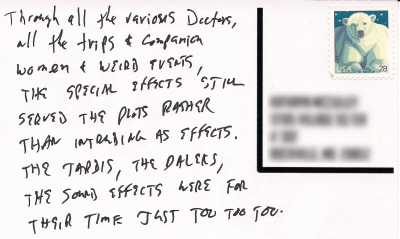 Through all the various Doctors,
all the trips & Companion
women & weird events,
THE SPECIAL EFFECTS STILL
SERVED THE PLOTS RATHER
THAN INTRUDING AS EFFECTS.
THE TARDIS, THE DALEKS,
THE SOUND EFFECTS WERE FOR
THEIR TIME JUST TOO TOO TOO.
USA 28